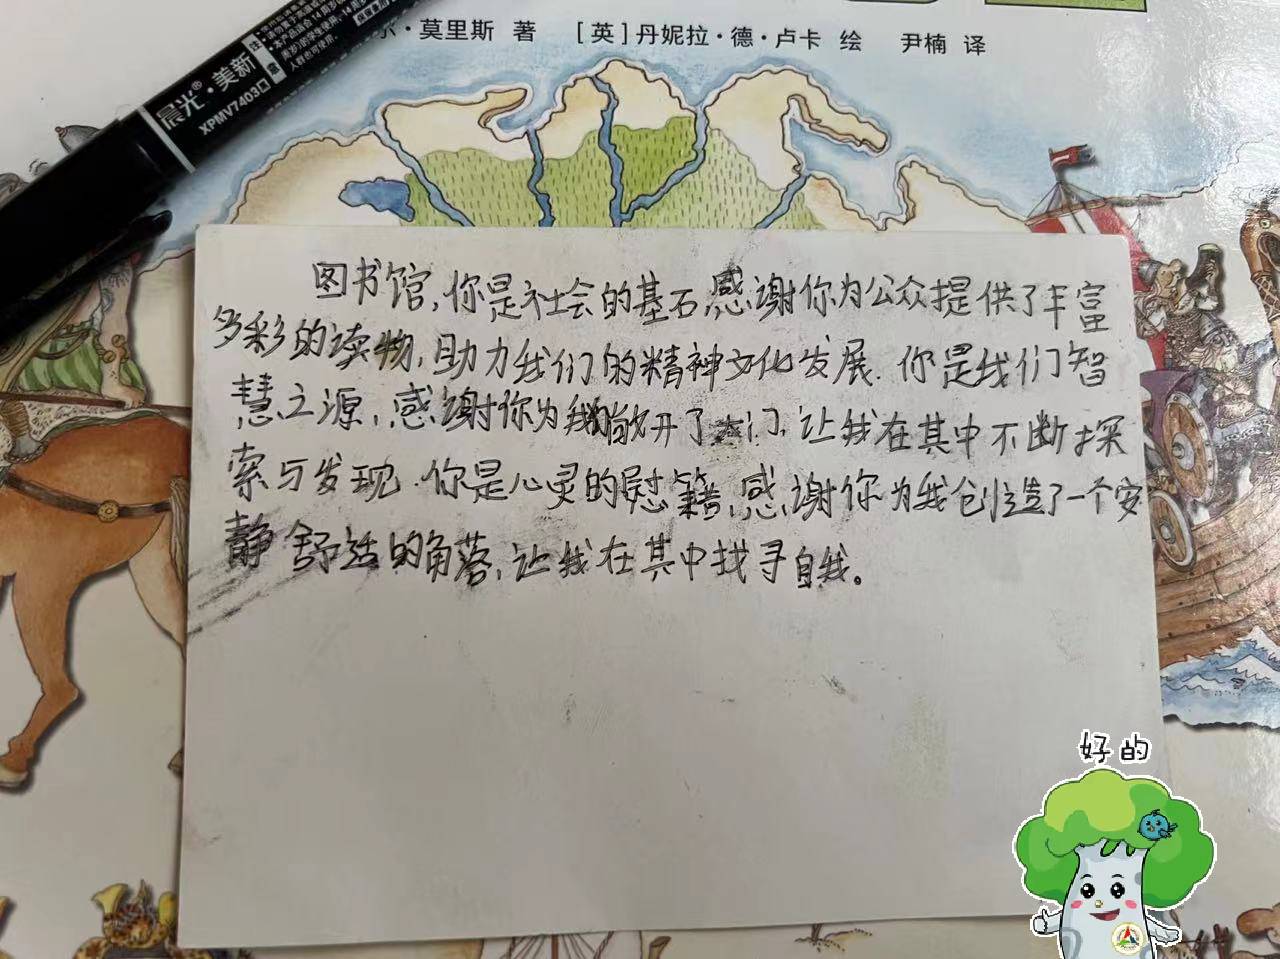 尔·莫里斯 著 [英]丹妮拉·德·卢卡 绘 尹楠 译
晨光®·美新
XPMV7403
图书馆,你是社会的基石,感谢你为公众提供了丰富
多彩的读物,助力我们的精神文化发展.你是我们智
慧之源,感谢你为我们敞开了大门,让我在其中不断探
索与发现.你是心灵的慰籍,感谢你为我创造了一个安
静舒适的角落,让我在其中找寻自我。
好的